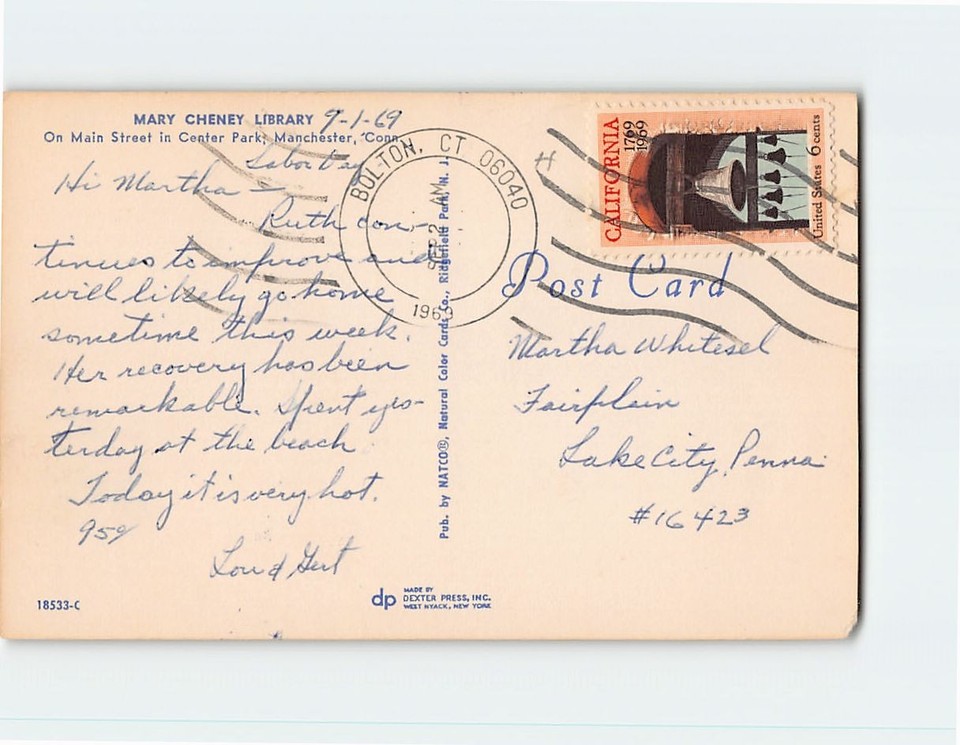 MARY CHENEY LIBRARY 9-1-69
On Main Street in Center Park, Manchester, Conn.
Labor Day
Hi Martha –
Ruth con-
tinues to improve and
will likely go home
sometime this week.
Her recovery has been
remarkable. Spent yes-
terday at the beach
Today it is very hot.
95°
Lou & Gert
18533-C
dp
MADE BY
DEXTER PRESS, INC.
WEST NYACK, NEW YORK
Pub. by NATCO®, Natural Color Cards Co., Ridgefield Park, N. J.
BOLTON, CT 06040
AM
SEP 2
1969
CALIFORNIA
1769
1969
United States 6 cents
Post Card
Martha Whitesel
Fairplain
Lake City, Penna.
#16423